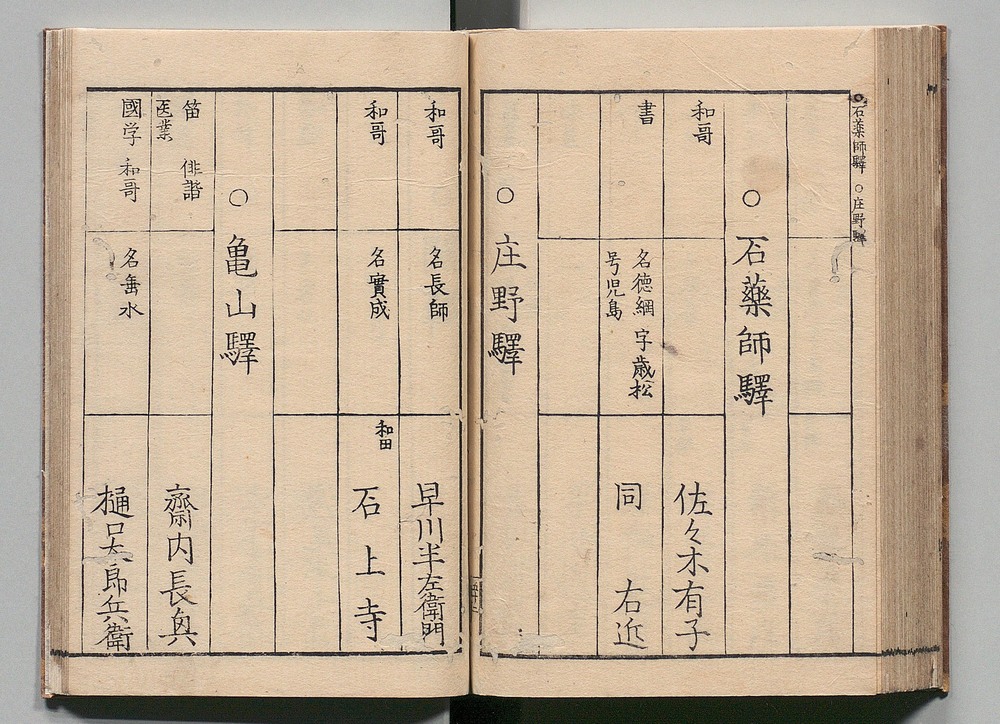 ○石薬師驛 ○庄野驛
○石藥師驛
和哥 佐々木有子
書 名徳綱 字歳松 号児島 同 右近
○庄野驛
和哥 名長師 早川半左衛門
和哥 名實成 和田 石上寺
○亀山驛
笛 俳諧 医業 齋内長奥
國学 和哥 名垂水 樋口太郎兵衛